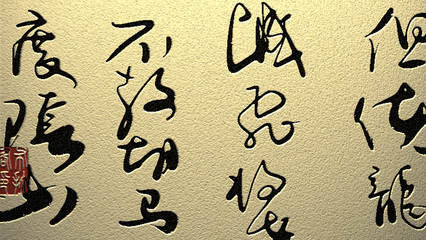 但使龍
城飛将
不教胡马
度陰山